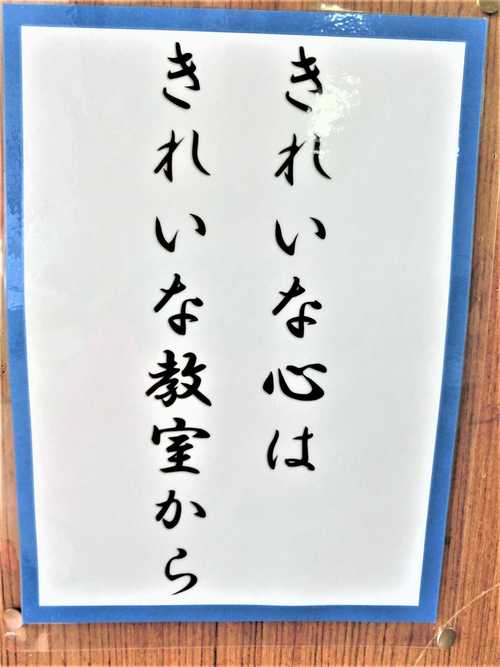 きれいな心は
きれいな教室から